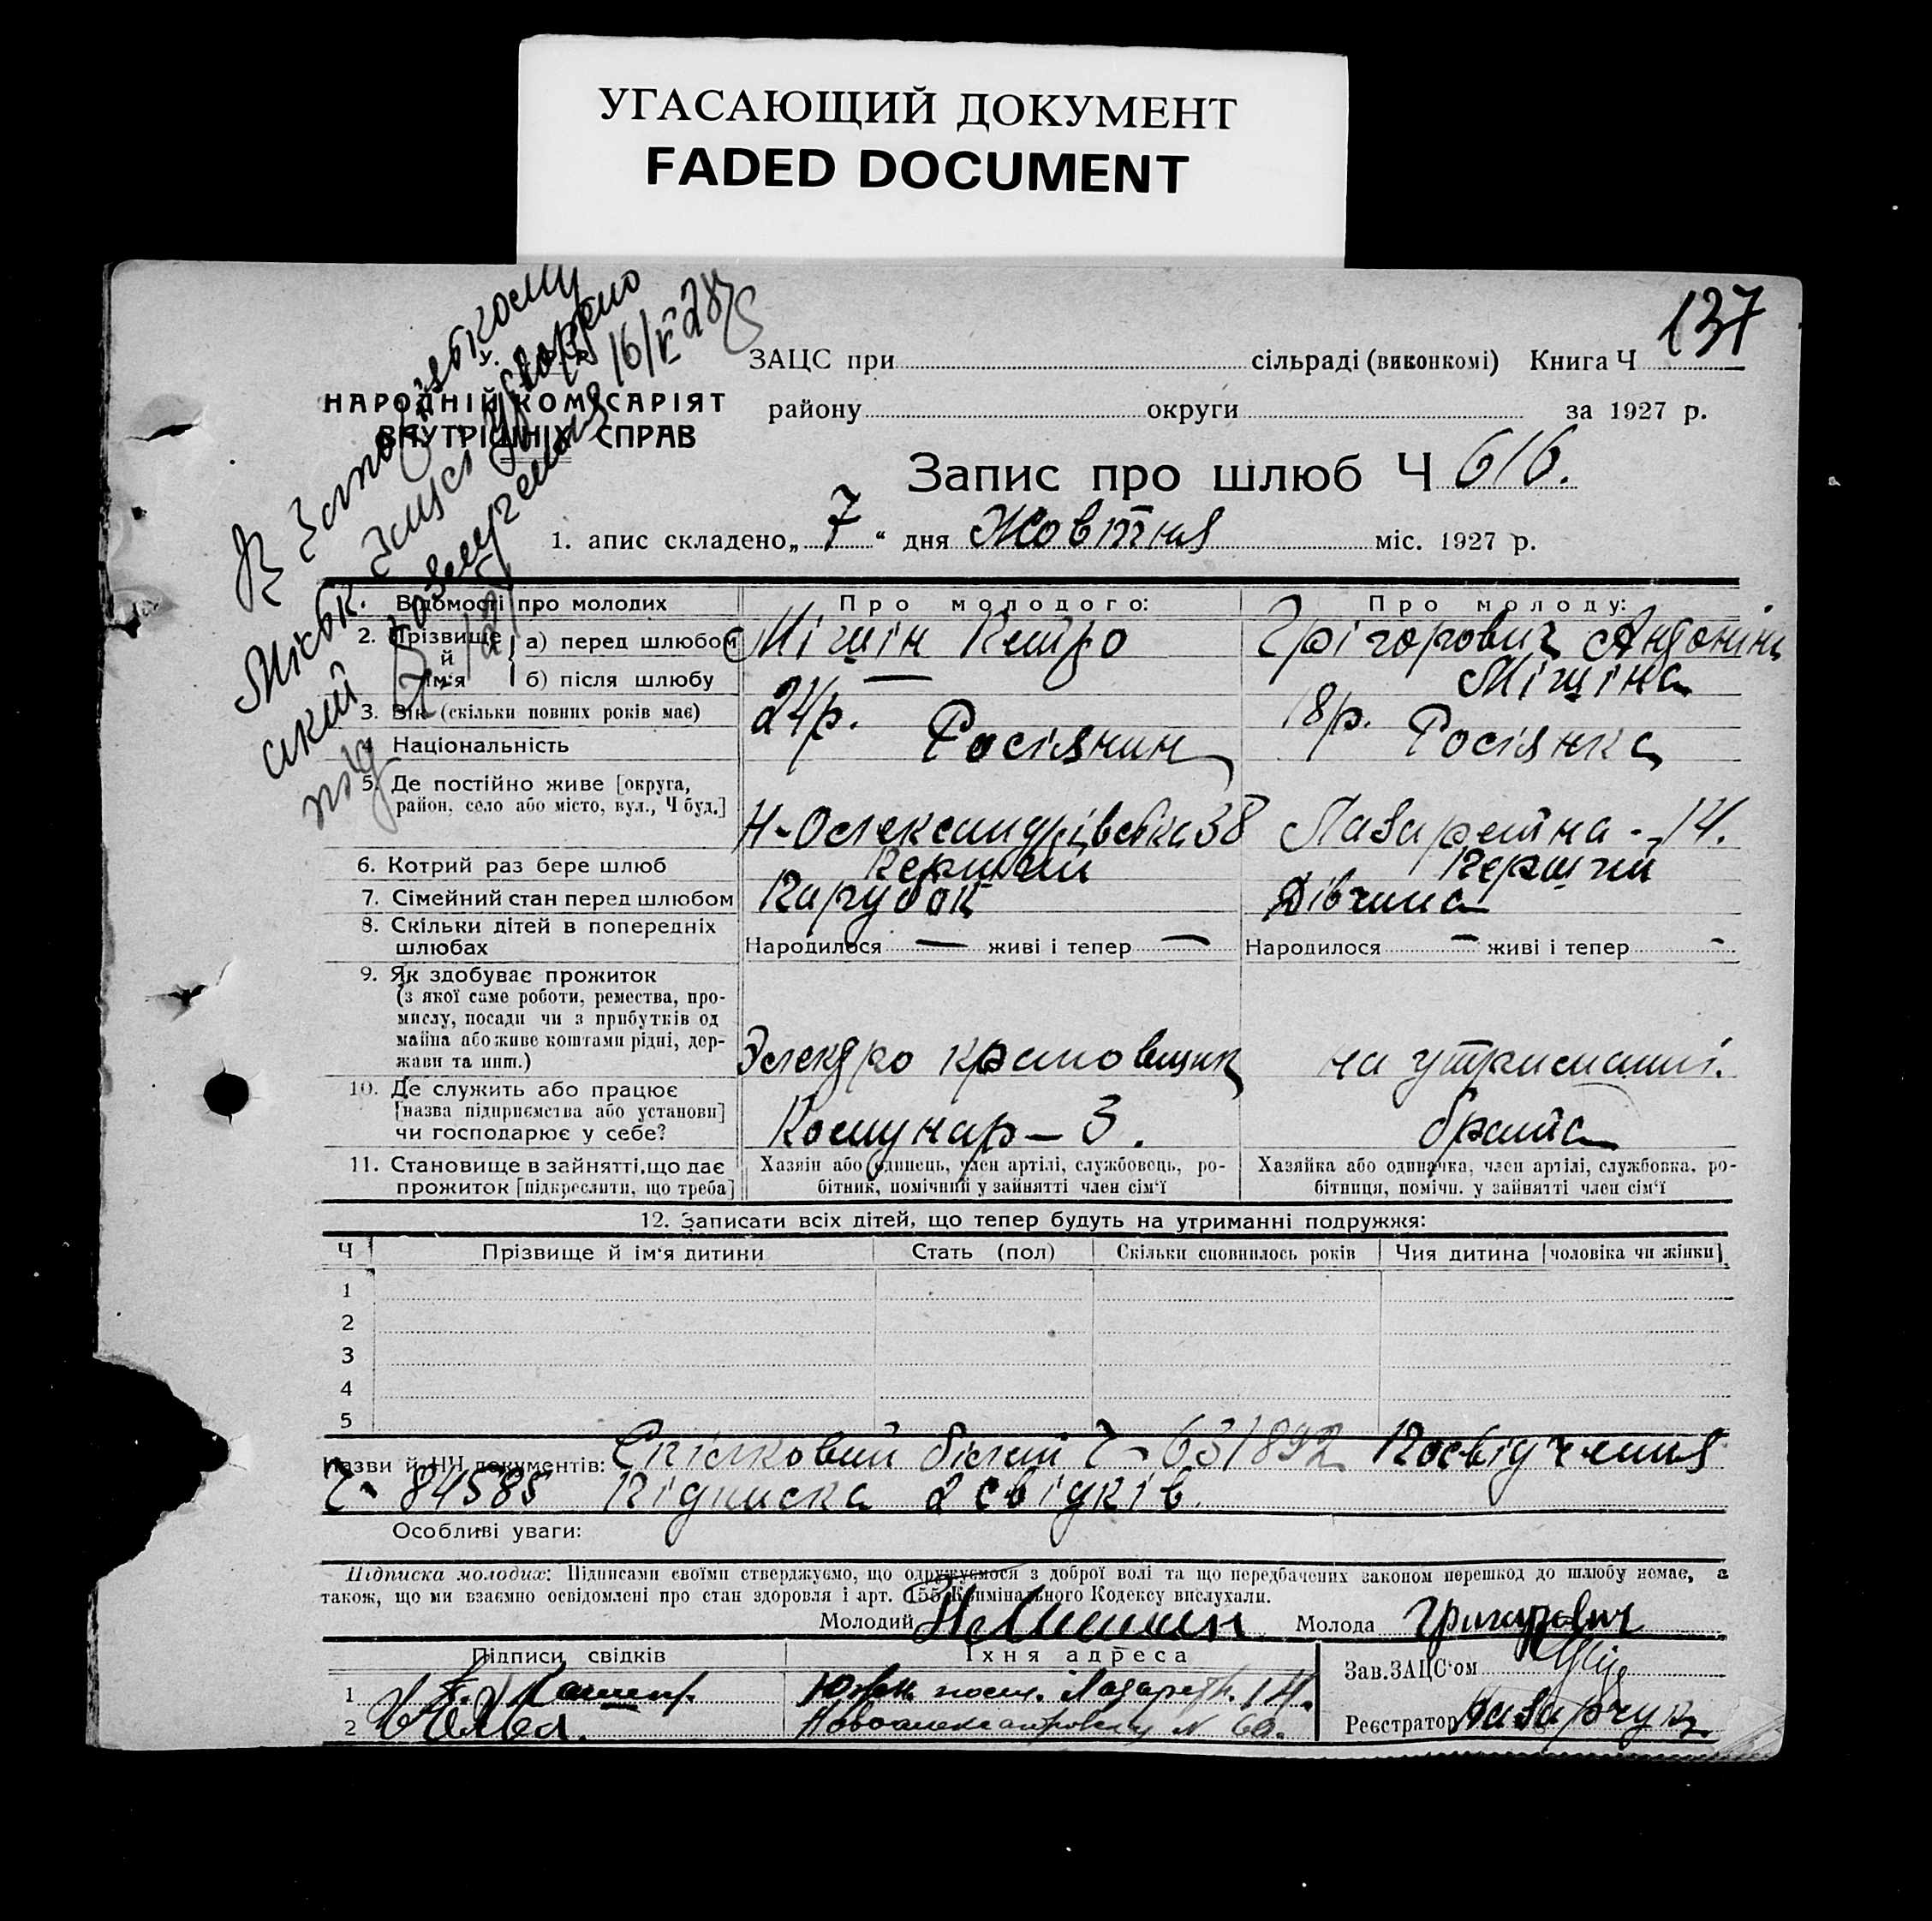 УГАСАЮЩИЙ ДОКУМЕНТ
FADED DOCUMENT
137
У. С. Р. Р.
НАРОДНІЙ КОМІСАРІЯТ
ВНУТРІШНІХ СПРАВ
ЗАЦС при сільраді (виконкомі) Книга Ч
району округи за 1927 р.
Запис про шлюб Ч 616.
1. апис складено „ 7 “ дня Жовтня міс. 1927 р.
В Запорізькому
Міськ. Зацсі
16/V 28
Відомості про молодих Про молодого: Про молоду:
2. Прізвище й ім'я а) перед шлюбом Мішін Петро Грігорович Антоніна
б) після шлюбу — Мішіна
3. Вік (скільки повних років має) 24 р. 18 р.
4 Національність Росіянин Росіянка
5. Де постійно живе [округа,
район, село або місто, вул., Ч буд.]
Н-Олександрівська 38 Лазаретна - 14.
6. Котрий раз бере шлюб Перший Перший
7. Сімейний стан перед шлюбом Парубок Дівчина
8. Скільки дітей в попередніх
шлюбах Народилося — живі і тепер — Народилося — живі і тепер -
9. Як здобуває прожиток
(з якої саме роботи, ремества, про-
мислу, посади чи з прибутків од
майна або живе коштами рідні, дер-
жави та инш.) Электро крановщик на утриманні
10. Де служить або працює
[назва підприємства або установи]
чи господарює у себе? Комунар – 3. брата
11. Становище в зайнятті, що дає Хазяїн або одинець, член артілі, службовець, ро- Хазяйка або одиначка, член артілі, службовка, ро-
прожиток [підкреслити, що треба] бітник, помічний у зайнятті член сім'ї бітниця, помічн. у зайнятті член сім'ї
12. Записати всіх дітей, що тепер будуть на утриманні подружжя:
Ч Прізвище й ім'я дитини Стать (пол) Скільки сповнилось років Чия дитина [чоловіка чи жінки]
1
2
3
4
5
Назви й НН документів: Спілковий білет Ч - 631892 Посвідчення
Ч- 84585 Підписка 2 свідків.
Особливі уваги:
Підписка молодих: Підписами своїми стверджуємо, що одружуємося з доброї волі та що передбачених законом перешкод до шлюбу немає, а
також, що ми взаємно освідомлені про стан здоровля і арт. 155 Кримінального Кодексу вислухали.
Молодий Мишин Молода Григорович
Підписи свідків Їхня адреса Зав. ЗАЦС'ом
1 Южн. посл. Лазаретн. 14.
2 Новоалександровску N 60. Реєстратор Назарчук